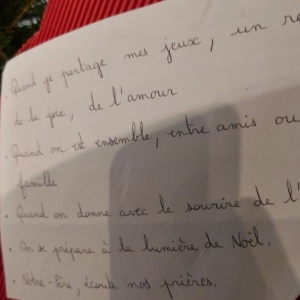 Quand je partage mes jeux, un
de la joie, de l'amour
. Quand on est ensemble, entre amis ou
famille
. Quand on donne avec le sourire de l'
. On se prépare à la lumière de Noël.
. Notre-Père, écoute nos prières.